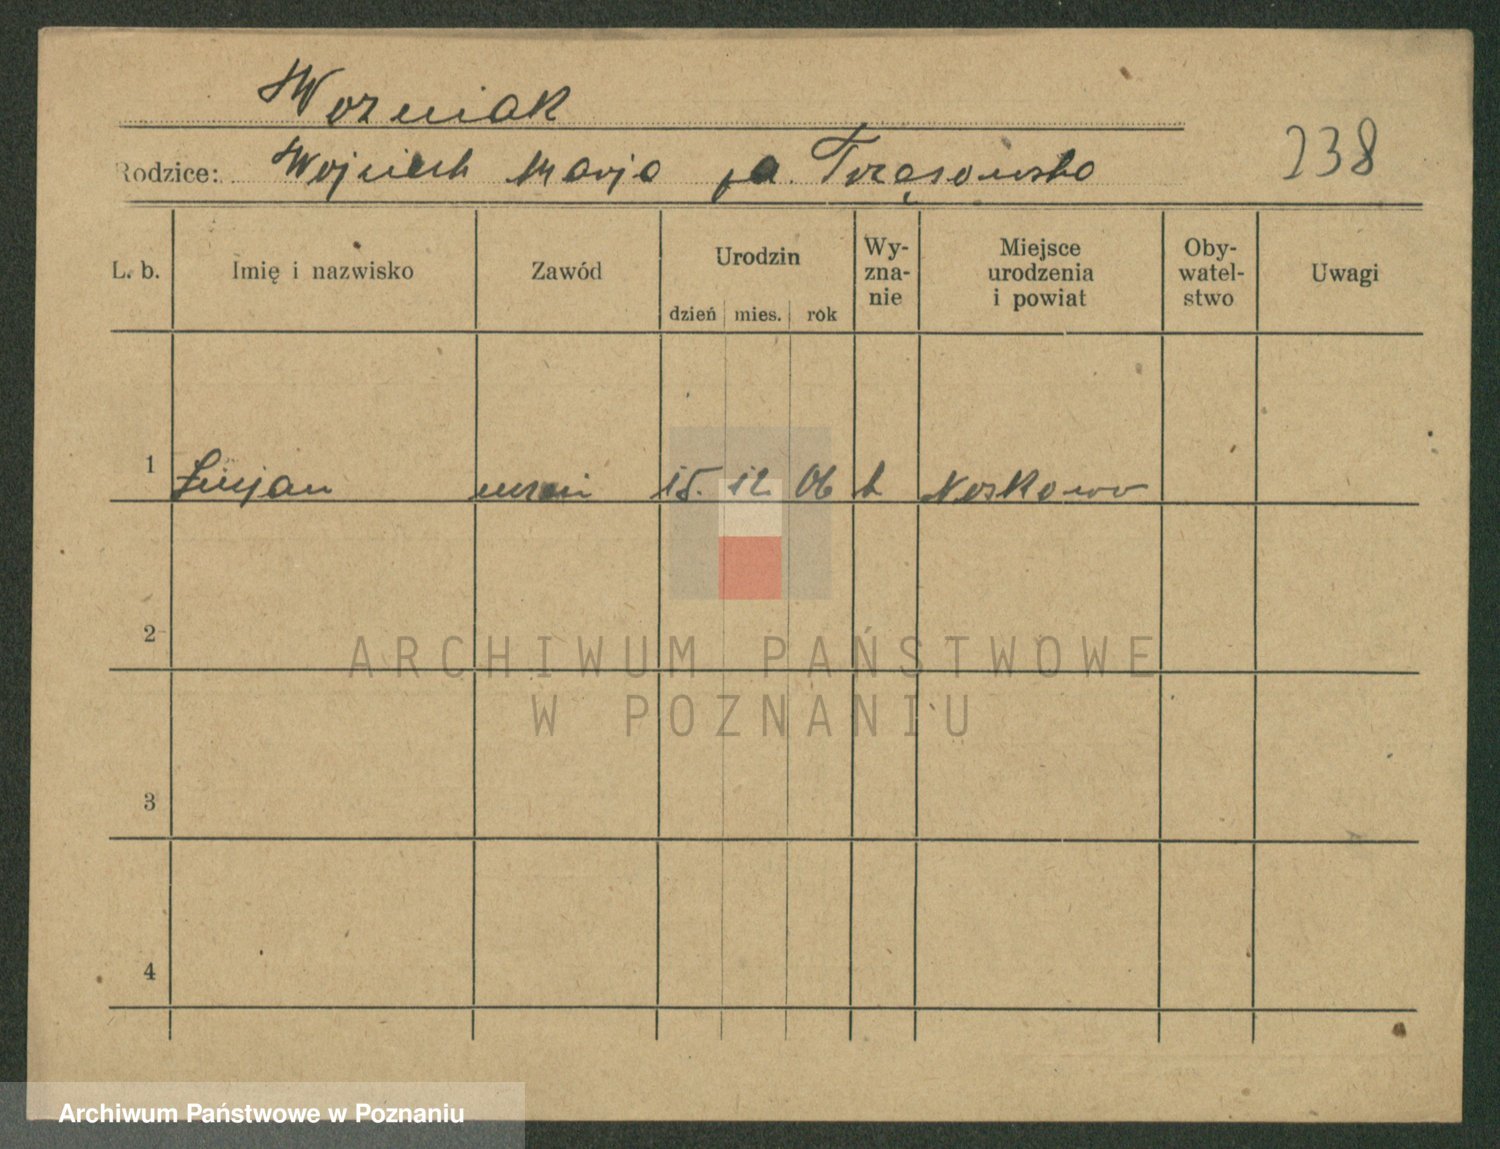 Wozniak
Rodzice: Wojciech Marja 238
L. b. Imię i nazwisko Zawód Urodzin dzień mies. rok Wy-zna-nie Miejsce urodzenia i powiat Oby-watel-stwo Uwagi
1 Lucjan uczeń 15. 12. 06 k Noskowo
2
3
4
ARCHIWUM PAŃSTWOWE
W POZNANIU
Archiwum Państwowe w Poznaniu